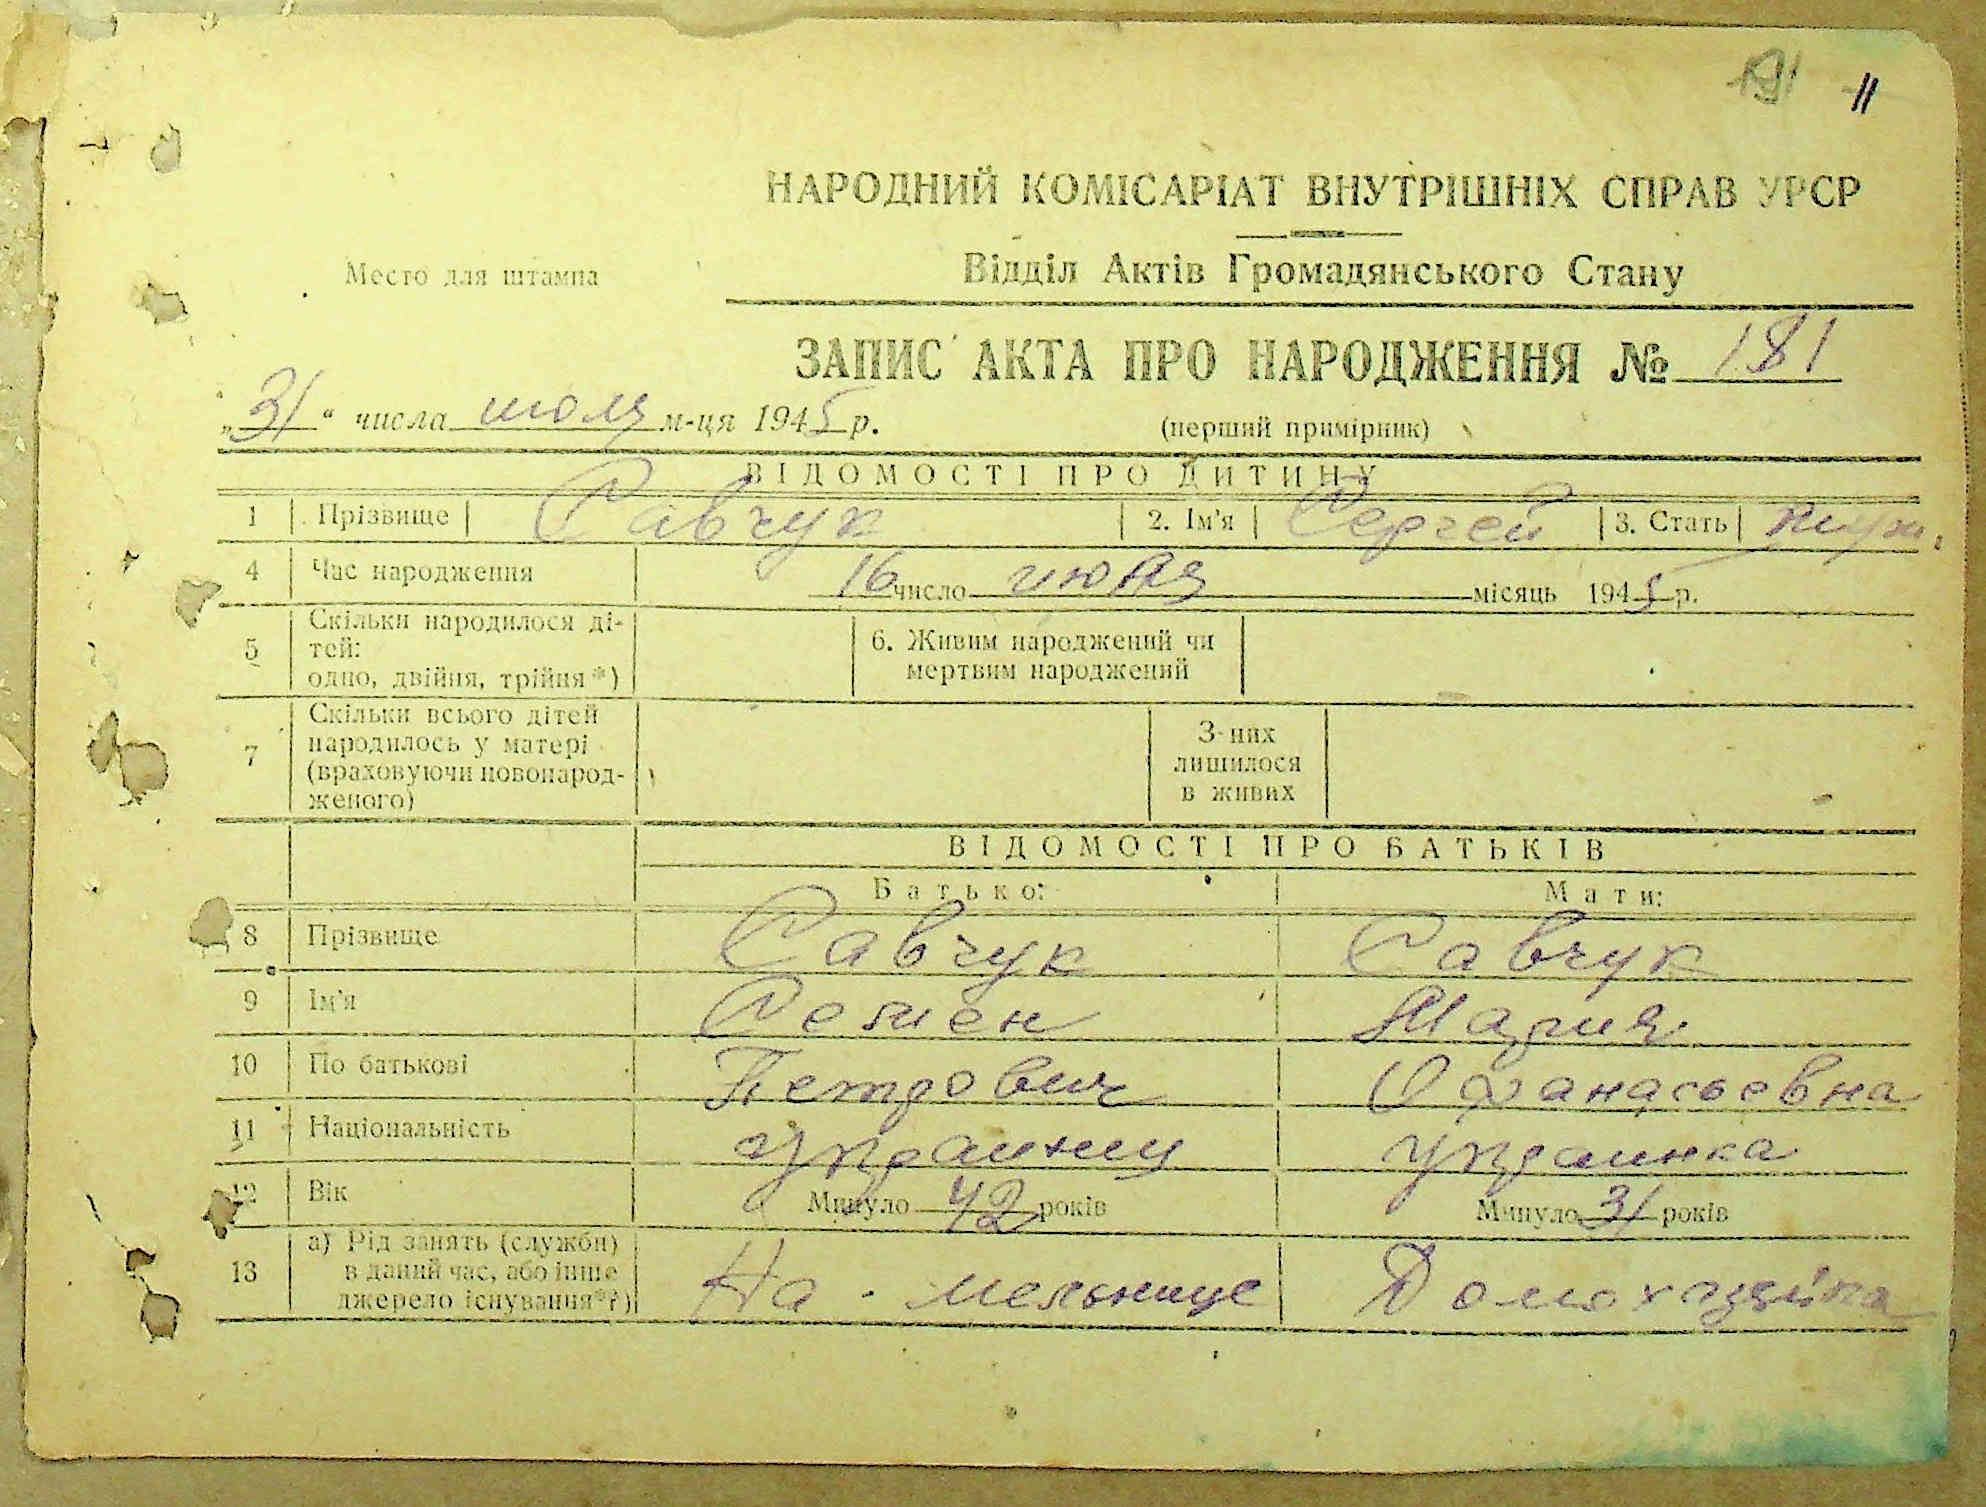 191 11
НАРОДНИЙ КОМІСАРІАТ ВНУТРІШНІХ СПРАВ УРСР
Место для штампа
Відділ Актів Громадянського Стану
ЗАПИС АКТА ПРО НАРОДЖЕННЯ № 181
„31“ числа июля м-ця 1945 р.
(перший примірник)
ВІДОМОСТІ ПРО ДИТИНУ
1 Прізвище Савчук 2. Ім'я Сергей 3. Стать муж.
4 Час народження 16 число июля місяць 1945 р.
5 Скільки народилося ді-
тей:
одно, двійня, трійня*)
6. Живим народжений чи
мертвим народжений
7 Скільки всього дітей
народилось у матері
(враховуючи новонарод-
женого)
З них
лишилося
в живих
ВІДОМОСТІ ПРО БАТЬКІВ
Батько: Мати:
8 Прізвище Савчук Савчук
9 Ім'я Семен Мария
10 По батькові Петрович Офанасьевна
11 Національність украинец украинка
12 Вік Минуло 42 років Минуло 31 років
13 а) Рід занять (служби)
в даний час, або інше
джерело існування**)
На мельнице Домохазяйка